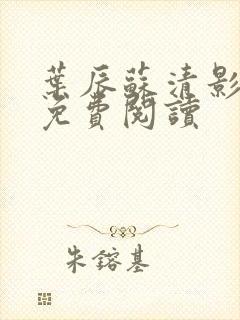 葉辰蘇清影
免費閱讀
朱鎔基